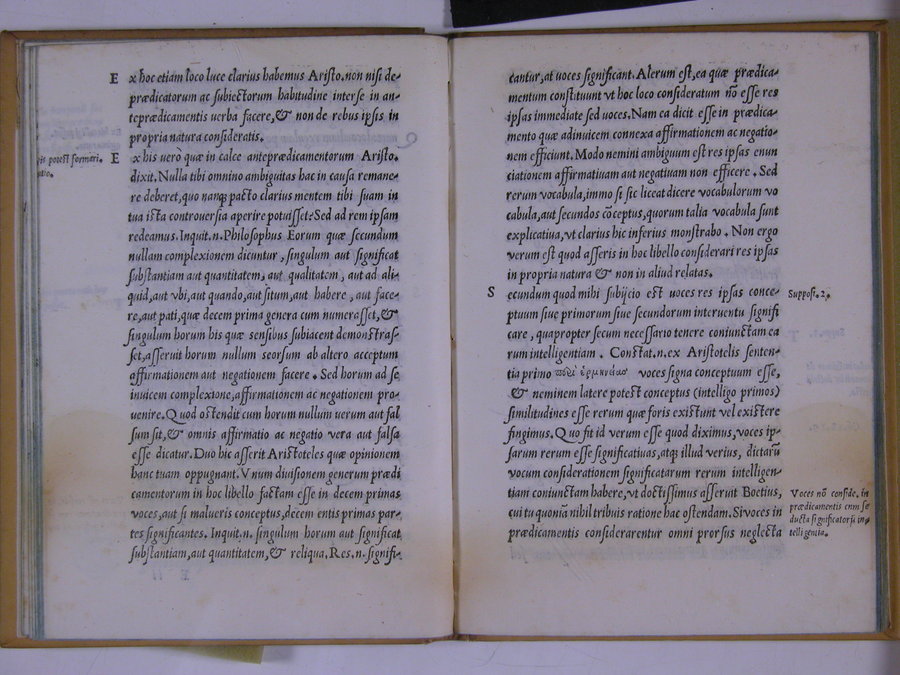 E x hoc etiam loco luce clarius habemus Aristo. non nisi de-
prædicatorum ac subiectorum habitudine inter se in an-
teprædicamentis uerba facere, & non de rebus ipsis in
propria natura consideratis.
E x his uerò quæ in calce anteprædicamentorum Aristo.
dixit. Nulla tibi omnino ambiguitas hac in causa remane-
re deberet, quo nanq; pacto clarius mentem tibi suam in
tua ista controuersia aperire potuisset: Sed ad rem ipsam
redeamus. Inquit .n. Philosophus Eorum quæ secundum
nullam complexionem dicuntur, singulum aut significat
substantiam aut quantitatem, aut qualitatem, aut ad ali-
quid, aut vbi, aut quando, aut situm, aut habere, aut face-
re, aut pati, quæ decem prima genera cum numerasset, &
singulum horum his quæ sensibus subiacent demonstras-
set, asseruit horum nullum seorsum ab altero acceptum
affirmationem aut negationem facere. Sed horum ad se
inuicem complexione, affirmationem ac negationem pro-
uenire. Quod ostendit cum horum nullum uerum aut fal
sum sit, & omnis affirmatio ac negatio vera aut falsa
esse dicatur. Duo hic asserit Aristoteles quæ opinionem
hanc tuam oppugnant. Vnum diuisionem generum prædi
camentorum in hoc libello factam esse in decem primas
voces, aut si malueris conceptus, decem entis primas par-
tes significantes. Inquit .n. singulum horum aut significat
substantiam, aut quantitatem, & reliqua, Res .n. signifi-
is potest formari.
cantur, at uoces significant. Alerum est, ea quæ prædica-
mentum constituunt vt hoc loco consideratum nõ esse res
ipsas immediate sed uoces. Nam ea dicit esse in prædica-
mento quæ adinuicem connexa affirmationem ac negatio-
nem efficiunt. Modo nemini ambiguum est res ipsas enun
ciationem affirmatiuam aut negatiuam non efficere. Sed
rerum vocabula, immo si sic liceat dicere vocabulorum vo
cabula, aut secundos cõceptus, quorum talia vocabula sunt
explicatiua, vt clarius hic inferius monstrabo. Non ergo
verum est quod asseris in hoc libello considerari res ipsas
in propria natura & non in aliud relatas.
S ecundum quod mihi subijcio est uoces res ipsas conce-
ptuum siue primorum siue secundorum interuentu signifi
care, quapropter secum necessario tenere coniunctam ea
rum intelligentiam. Constat .n. ex Aristotelis senten-
tia primo περὶ ἑρμηνείας voces signa conceptuum esse,
& neminem latere potest conceptus (intelligo primos)
similitudines esse rerum quæ foris existunt vel existere
fingimus. Quo fit id verum esse quod diximus, voces ip-
sarum rerum esse significatiuas, atq; illud verius, dictarũ
vocum considerationem significatarum rerum intelligen-
tiam coniunctam habere, vt doctissimus asseruit Boetius,
cui tu quoniã nihil tribuis ratione hac ostendam. Si voces in
prædicamentis considerarentur omni prorsus neglecta
Supposi. 2.
Voces nõ conside. in
prædicamentis cum se
ducta significatorũ in-
telligentia.